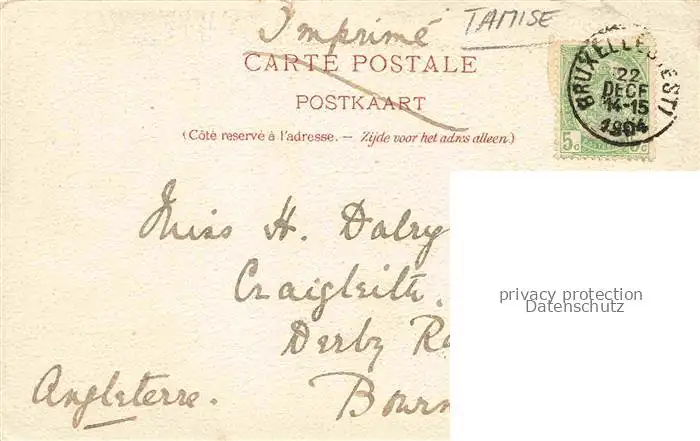 Imprimé
TAMISE
CARTE POSTALE
POSTKAART
(Côté reservé à l'adresse. — Zijde voor het adres alleen.)
BRUXELLES (EST)
22
DECE
14-15
1904
5c 5c
Miss H. Dalry
Craigleith.
Derby Ro
Bourn
Angleterre.
privacy protection
Datenschutz